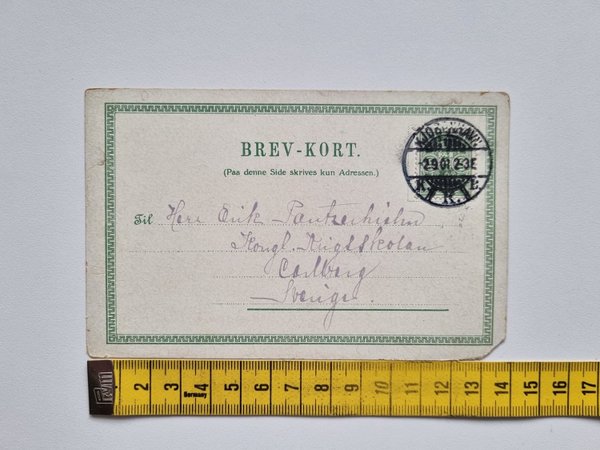 BREV-KORT.
(Paa denne Side skrives kun Adressen.)
KJØBENHAVN
2-3E
K.
Til Herr Erik Pantzerhielm
Kongl. Krigsskolan
Carlberg
Sverige.
2 3 4 5 6 7 8 9 10 11 12 13 14 15 16 17
Germany